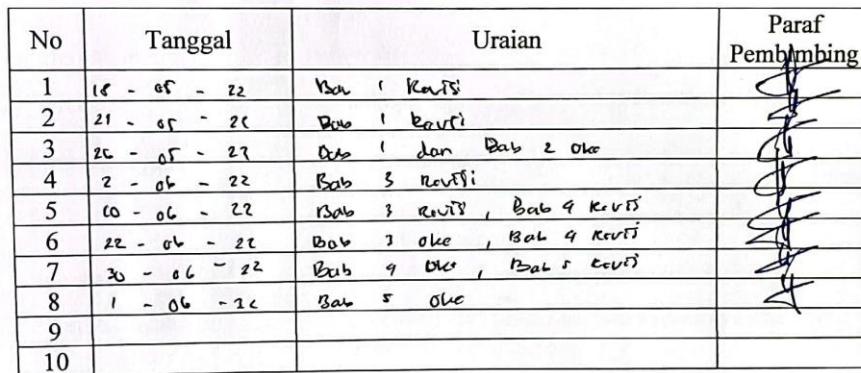 No Tanggal Uraian Paraf Pembimbing
1 18 - 05 - 22 Bab 1 Revisi
2 21 - 05 - 22 Bab 1 Revisi
3 26 - 05 - 22 Bab 1 dan Bab 2 oke
4 2 - 06 - 22 Bab 3 Revisi
5 10 - 06 - 22 Bab 3 Revisi, Bab 4 Revisi
6 22 - 06 - 22 Bab 3 oke, Bab 4 Revisi
7 30 - 06 - 22 Bab 4 oke, Bab 5 Revisi
8 1 - 06 - 22 Bab 5 oke
9
10